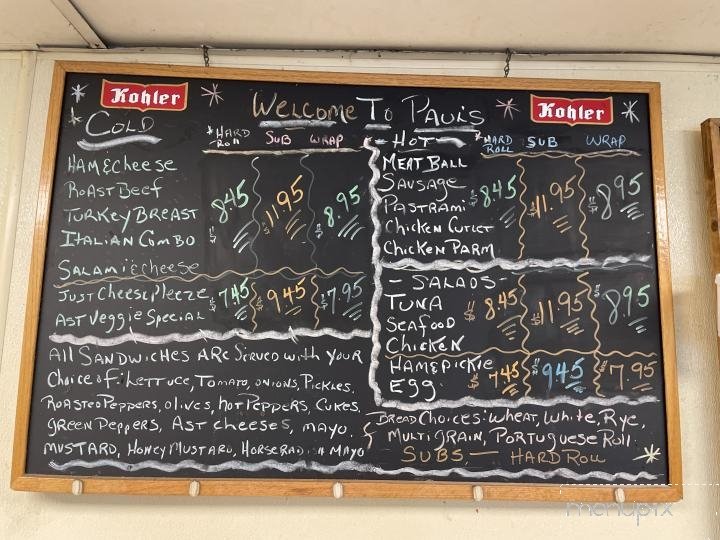 Kohler
Welcome To Paul's
Kohler
Cold
Hard Roll Sub Wrap
Ham & Cheese
Roast Beef
Turkey Breast
Italian Combo
Salami & cheese
8.45 $11.95 $8.95
Just Cheese Pleeze
Ast Veggie Special
$7.45 $9.45 $7.95
All Sandwiches Are Served with Your
Choice of: Lettuce, Tomato, onions, Pickles,
Roasted Peppers, olives, hot Peppers, Cukes,
green Peppers, Ast cheeses, mayo,
Mustard, Honey Mustard, Horserad. Mayo
- Hot -
Hard Roll Sub Wrap
Meat Ball
Sausage
Pastrami
Chicken Cutlet
Chicken Parm
$8.45 $11.95 $8.95
- Salads -
Tuna
Seafood
Chicken
$8.45 $11.95 $8.95
Ham & Pickle
Egg
$7.45 $9.45 $7.95
Bread Choices: Wheat, White, Rye,
Multi Grain, Portuguese Roll
Subs — Hard Roll
menupix